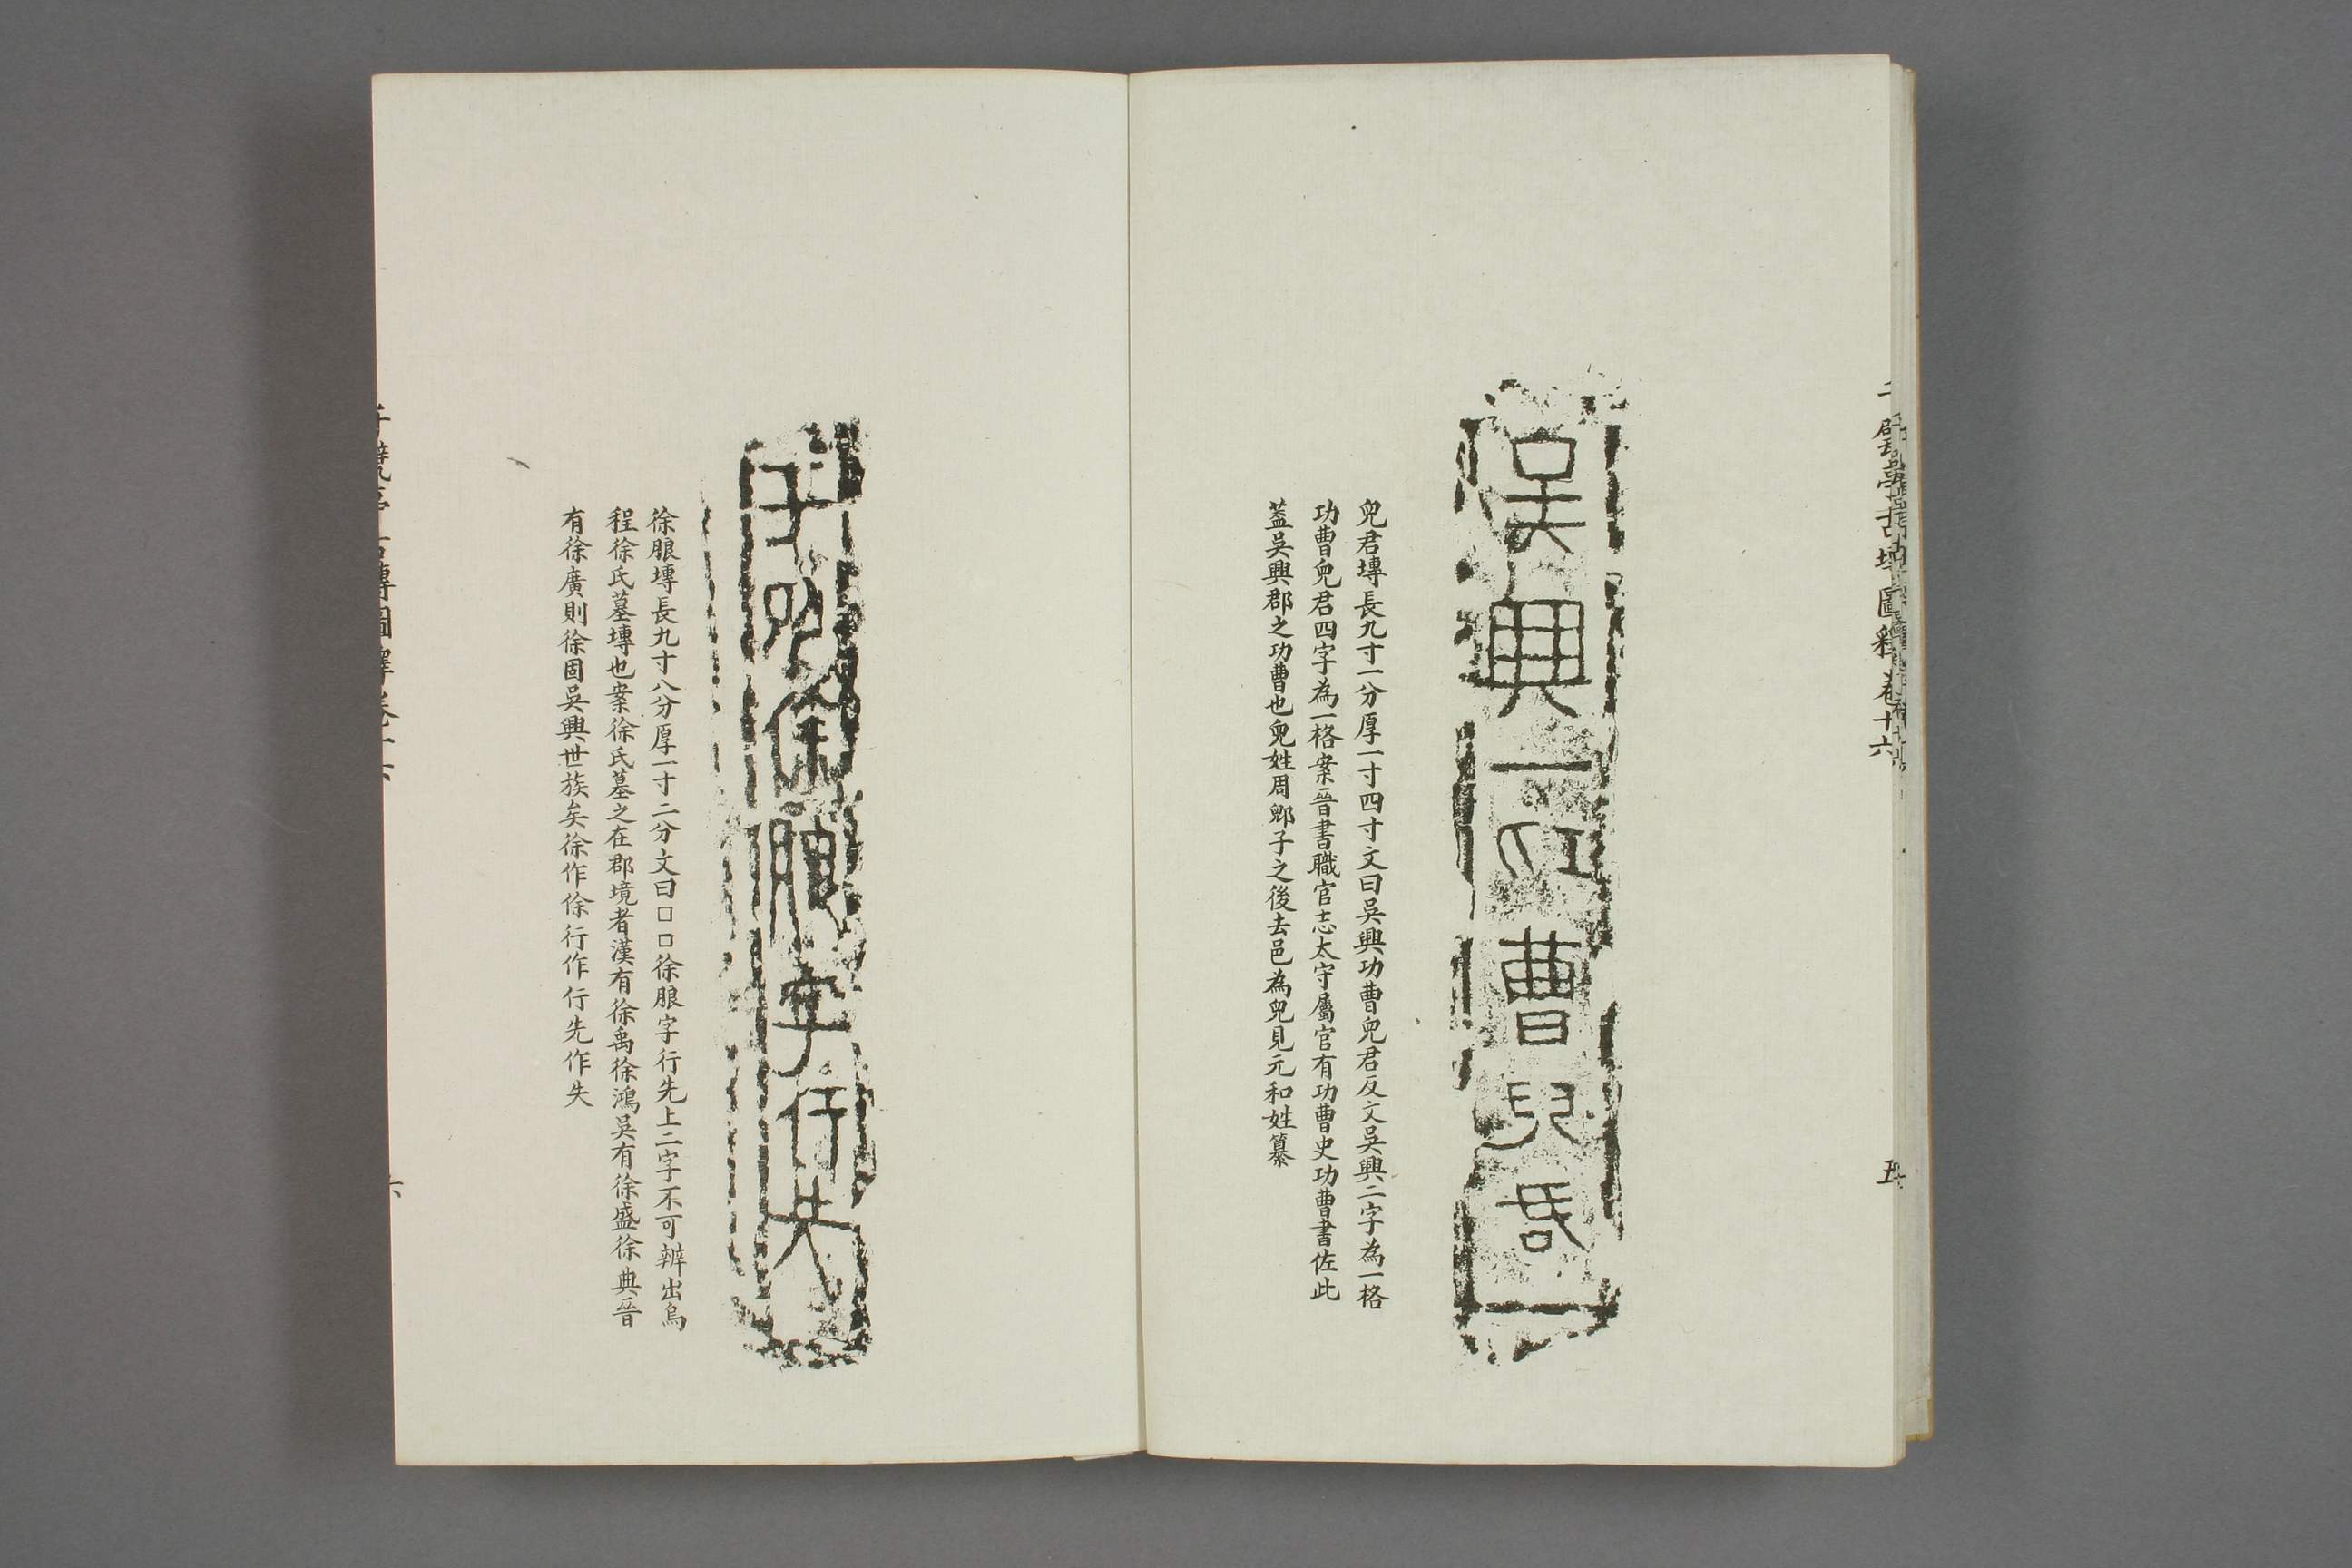 千甓亭古塼圖釋卷十六
五
吳興功曹兒君
兒君塼長九寸一分厚一寸四寸文曰吳興功曹兒君反文吳興二字為一格
功曹兒君四字為一格案晉書職官志太守屬官有功曹史功曹書佐此
葢吳興郡之功曹也兒姓周郳子之後去邑為兒見元和姓纂
徐䏰字行先
徐䏰塼長九寸八分厚一寸二分文曰□□徐䏰字行先上二字不可辨出烏
程徐氏墓塼也案徐氏墓之在郡境者漢有徐禹徐鴻吳有徐盛徐典晉
有徐廣則徐固吳興世族矣徐作俆行作行先作失
六